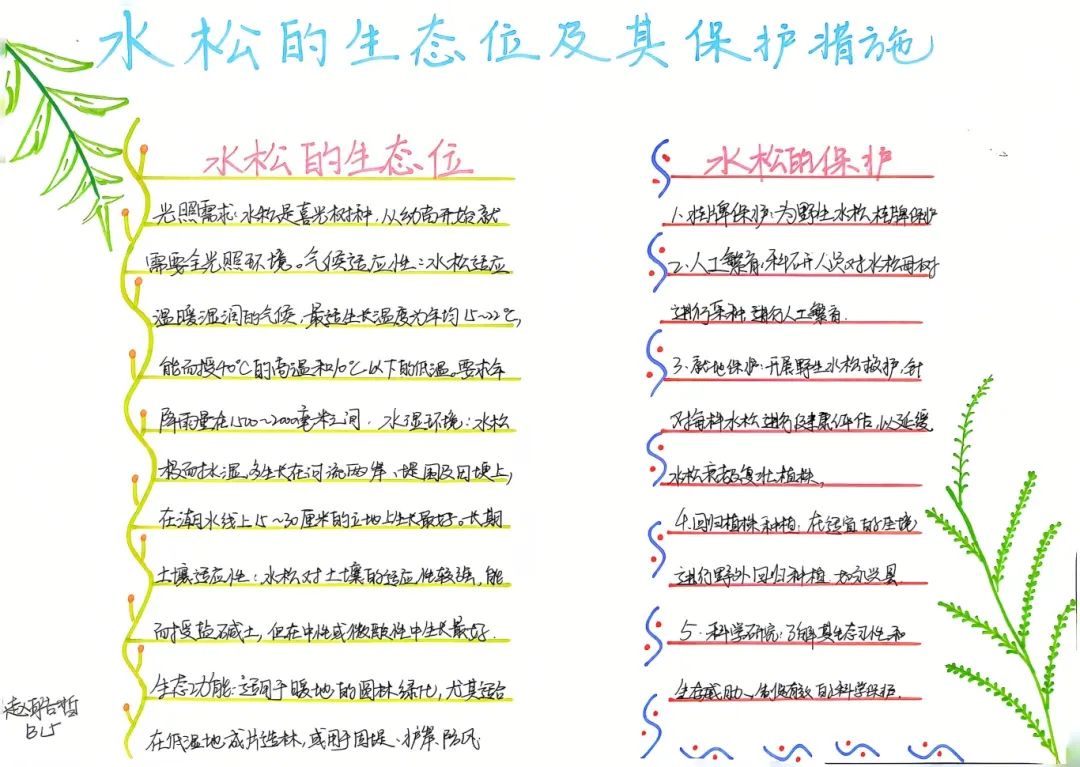 水松的生态位及其保护措施
水松的生态位
光照需求:水松是喜光树种,从幼苗开始就
需要全光照环境。气候适应性:水松适应
温暖湿润的气候,最适生长温度为年均15~22℃,
能耐授40℃的高温和10℃以下的低温。要求年
降雨量在1500~2000毫米之间. 水湿环境:水松
极耐水湿,多生长在河流两岸、堤围及田埂上,
在潮水线上15~30厘米的立地上生长最好。长期
土壤适应性:水松对土壤的适应性较强,能
耐授盐碱土,但在中性或微酸性中生长最好.
生态功能:适用于暖地的园林绿化,尤其适合
在低湿地成片造林,或用于固堤、护岸、防风
水松的保护
1.挂牌保护:为野生水松挂牌保护
2.人工繁育:科研人员对水松母树
进行采种,进行人工繁育.
3.就地保护:开展野生水松救护,针
对每株水松进行健康评估,以延缓
水松衰老复壮植株,
4.回归植株种植:在适宜的环境
进行野外回归种植,如永兴县
5.科学研究:了解其生态习性和
生存威胁、制保有效的科学保护.
赵酷哲
BL5